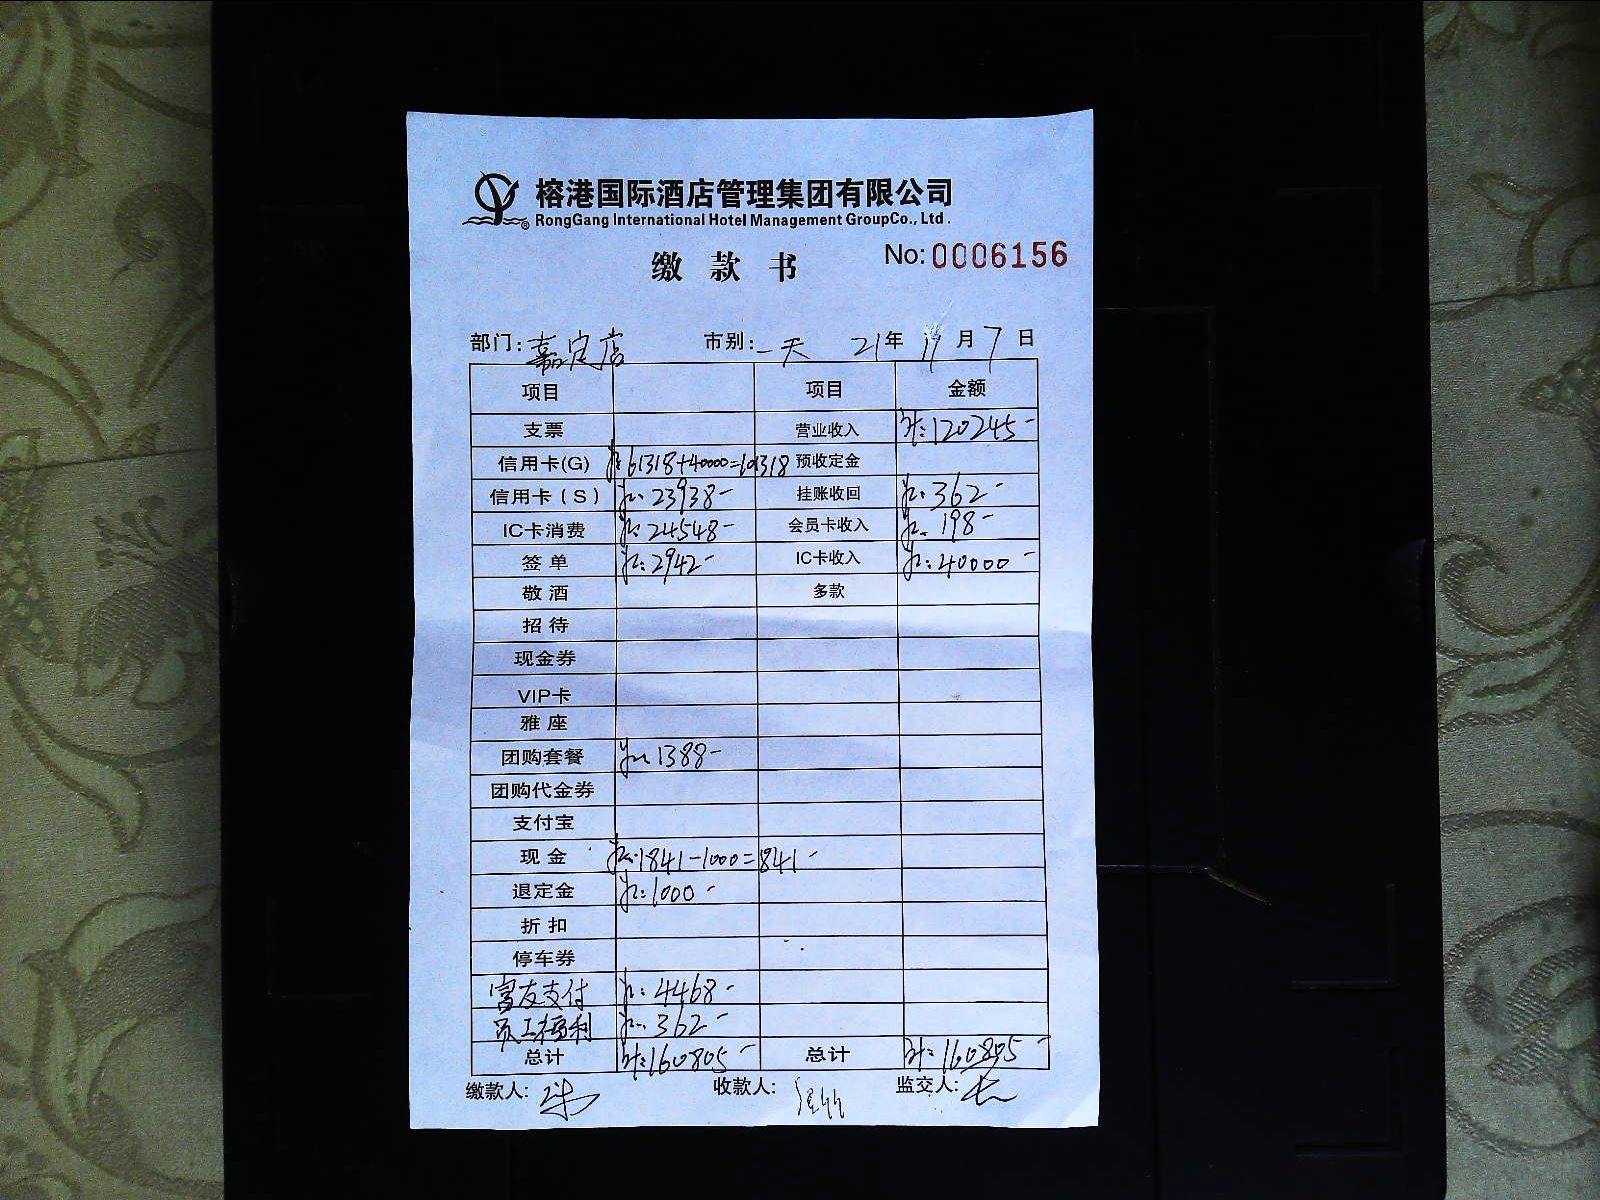 榕港国际酒店管理集团有限公司
RongGang International Hotel Management GroupCo., Ltd.
缴款书 No:0006156
部门:嘉定店 市别:一天 21年11月7日
项目 项目 金额
支票 营业收入 计:120245-
信用卡(G) 61318+40000=101318 预收定金
信用卡(S) 23938- 挂账收回 362-
IC卡消费 24548- 会员卡收入 198-
签单 2942- IC卡收入 40000-
敬酒 多款
招待
现金券
VIP卡
雅座
团购套餐 1388-
团购代金券
支付宝
现金 1841-1000=841-
退定金 1000-
折扣
停车券
富友支付 4468-
员工福利 362-
总计 计:160805- 总计 计:160805-
缴款人: 收款人: 监交人: